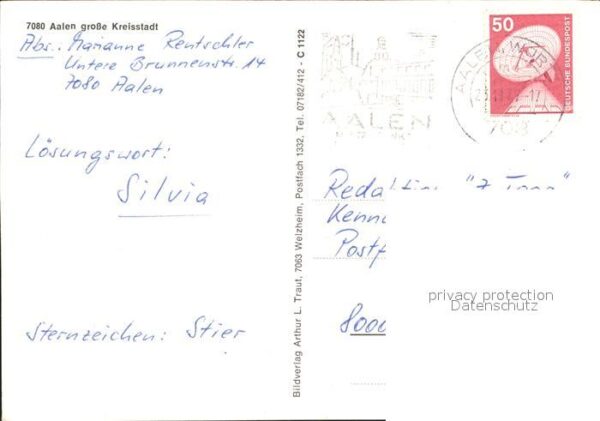 7080 Aalen große Kreisstadt
Abs.: Marianne Rentschler
Untere Brunnenstr. 14
7080 Aalen
Lösungswort:
Silvia
Sternzeichen: Stier
Bildverlag Arthur L. Traut, 7063 Welzheim, Postfach 1332, Tel. 07182/412 · C 1122
AALEN
50
DEUTSCHE BUNDESPOST
AALEN
708
Redaktion "7
Kenn
Postf
8000
privacy protection
Datenschutz